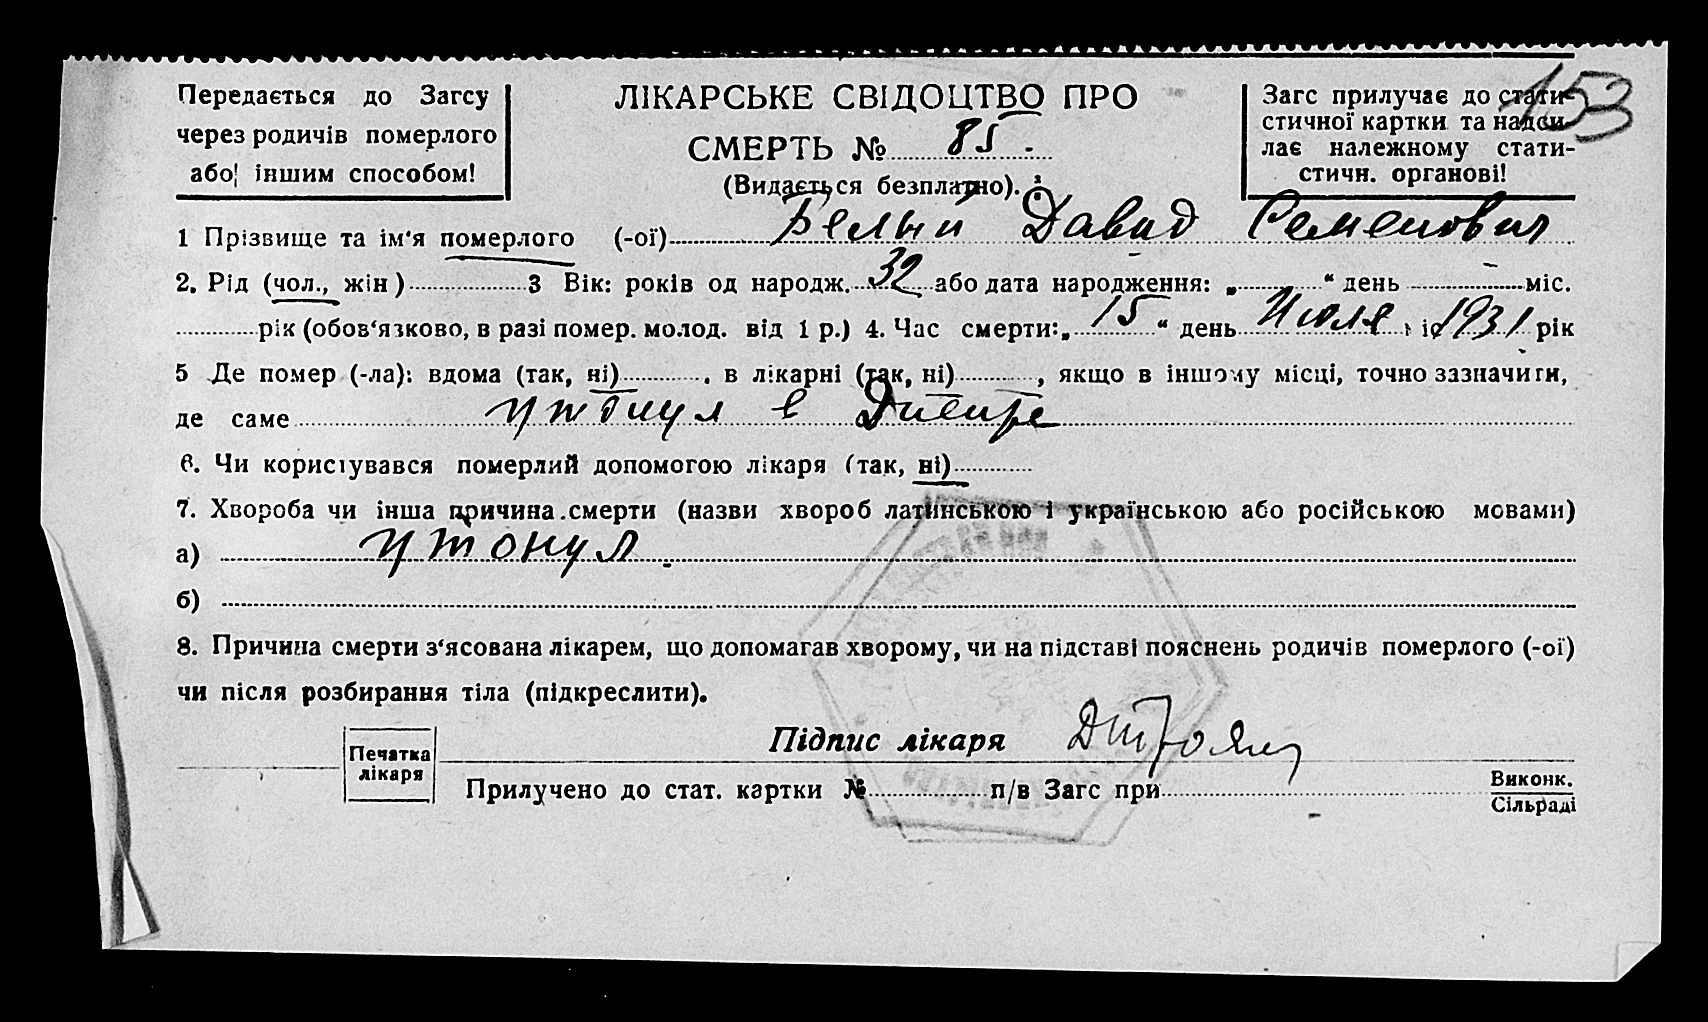 153
Передається до Загсу
через родичів померлого
або іншим способом!
ЛІКАРСЬКЕ СВІДОЦТВО ПРО
СМЕРТЬ № 85.
(Видається безплатно).
Загс прилучає до стати-
стичної картки та надси-
лає належному стати-
стичн. органові!
1 Прізвище та ім'я померлого (-ої) Белый Давид Семенович
2. Рід (чол., жін) 3 Вік: років од народж. 32 або дата народження: „ “ день міс.
рік (обов‘язково, в разі помер. молод. від 1 р.) 4. Час смерти: „ 15 “ день Июля 1931 рік
5 Де помер (-ла): вдома (так, ні) , в лікарні (так, ні) , якщо в іншому місці, точно зазначити,
де саме утонул в Днепре
6. Чи користувався померлий допомогою лікаря (так, ні)
7. Хвороба чи інша причина смерти (назви хвороб латинською і українською або російською мовами)
а) утонул
б)
8. Причина смерти з‘ясована лікарем, що допомагав хворому, чи на підставі пояснень родичів померлого (-ої)
чи після розбирання тіла (підкреслити).
Печатка
лікаря
Підпис лікаря
Прилучено до стат. картки № п/в Загс при
Виконк.
Сільраді